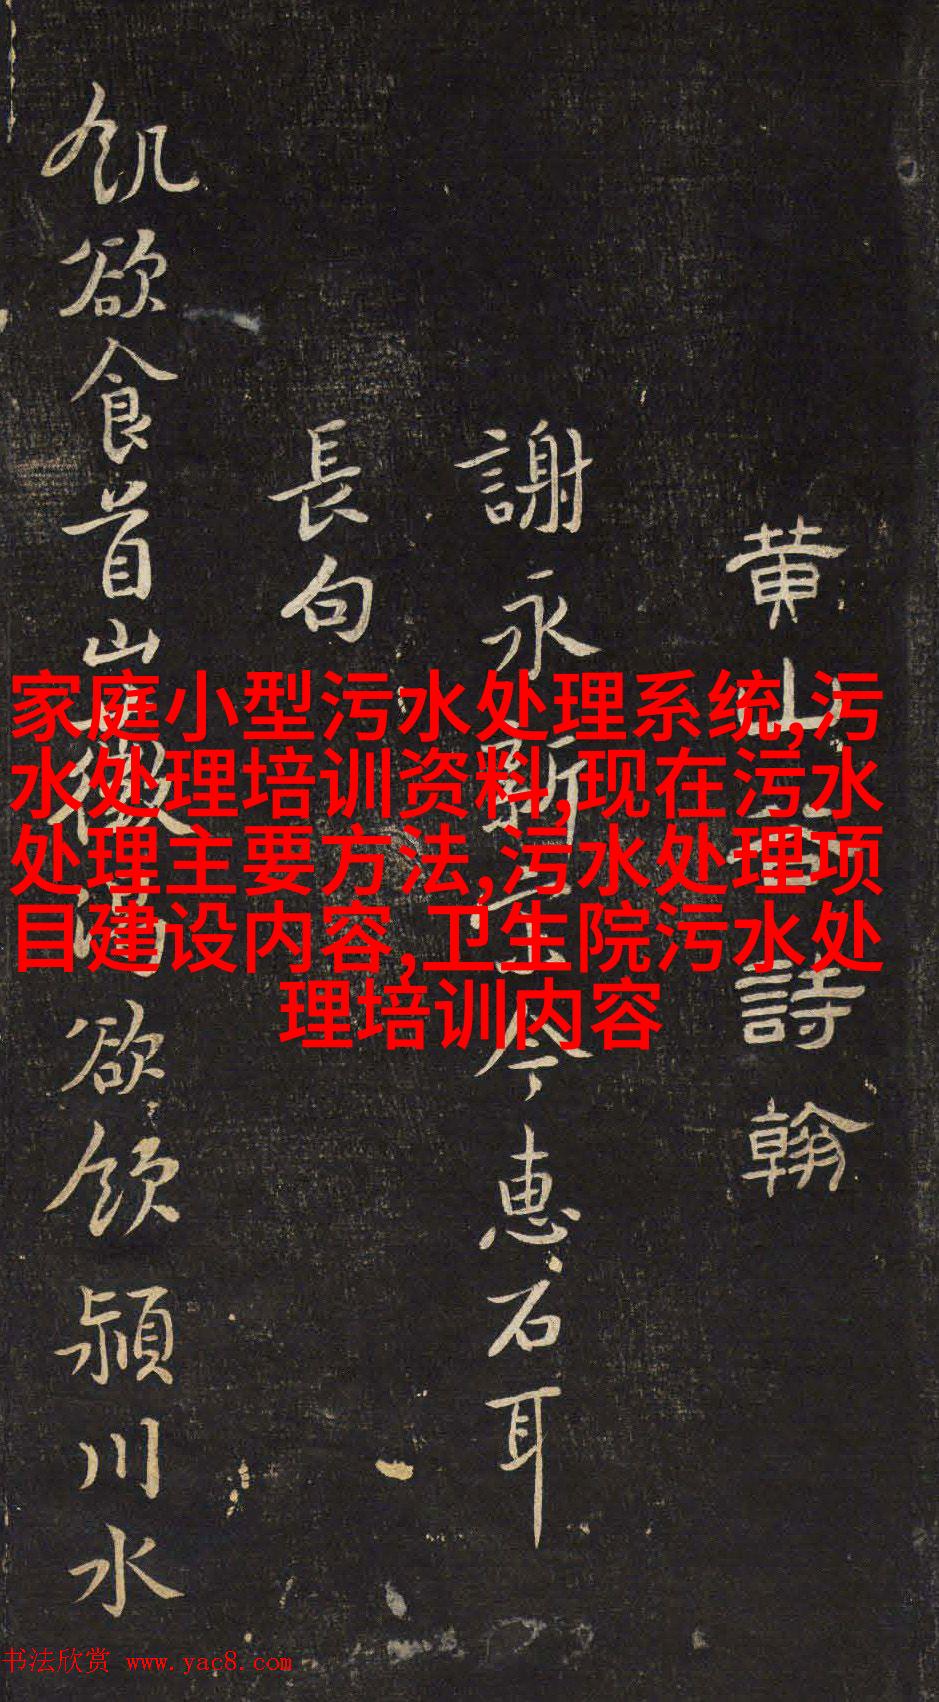 黄山谷詩翰
謝永新今惠石耳
長句
飢欲食首山薇渴欲飲潁川水
家庭小型污水处理系统,污
水处理培训资料,现在污水
处理主要方法,污水处理项
目建设内容,卫生院污水处
理培训内容
书法欣赏 www.yac8.com